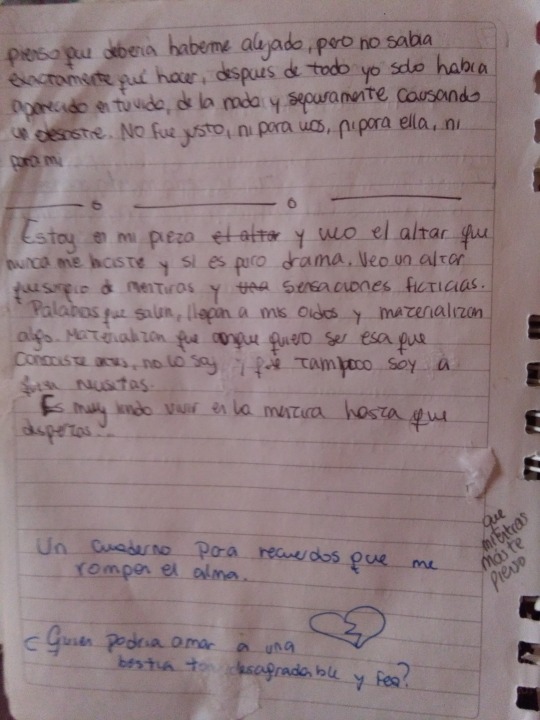 pienso que deberia haberme alejado, pero no sabia
exactamente qué hacer, despues de todo yo solo habia
aparecido en tu vida, de la nada y seguramente causando
un desastre. No fue justo, ni para vos, ni para ella, ni
para mi
Estoy en mi pieza el altar y veo el altar que
nunca me hiciste y si es puro drama. Veo un altar
de mentiras y sensaciones ficticias.
Palabras que salen, llegan a mis oidos y materializan
algo. Materializan que aunque quiero ser esa que
conociste antes, no lo soy y que tampoco soy a
quien necesitas.
Es muy lindo vivir en la mentira hasta que
despertas...
que
mientras
mas te
pienso
Un cuaderno para recuerdos que me
rompen el alma.
¿Quien podria amar a una
bestia tan desagradable y fea?